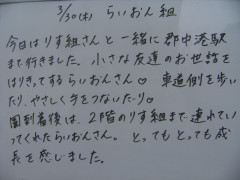 3/30(木) らいおん組
今日はりす組さんと一緒に郡中港駅
まで行きました。小さな友達のお世話を
はりきってするらいおんさん♡ 車道側を歩い
たり、やさしく手をつないだり♡
園到着後は、2階のりす組まで連れてい
ってくれたらいおんさん。とってもとっても成
長を感じました。